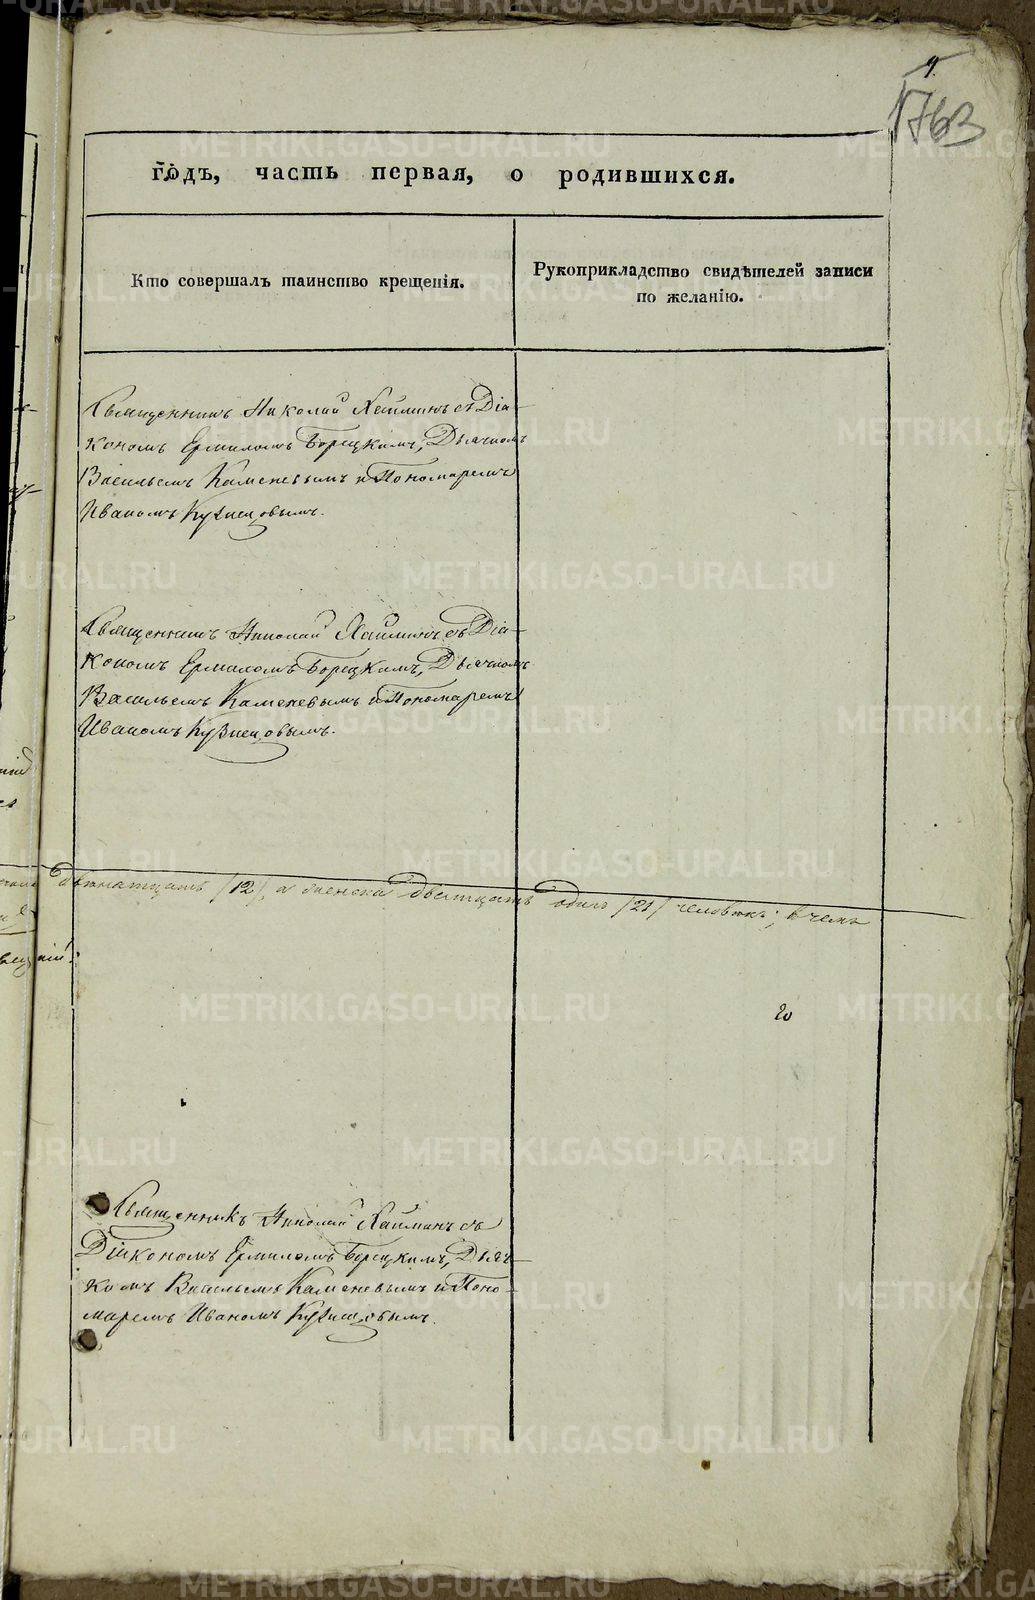 9.
1763
гѡдъ, часть первая, о родившихся.
Кто совершалъ таинство крещенія.
Рукоприкладство свидѣтелей записи
по желанію.
Священникъ Николай Хаймин съ Діа-
кономъ Ермиломъ Борецкимъ, Дьячкомъ
Васильемъ Каменевымъ и Пономаремъ
Иваномъ Кузнецовымъ.
Священникъ Николай Хаймин съ Діа-
кономъ Ермиломъ Борецкимъ, Дьячкомъ
Васильемъ Каменевымъ и Пономаремъ
Иваномъ Кузнецовымъ.
двенатцать /12/, а женска дватцать одинъ /21/ человѣкъ; в чемъ
20
Священникъ Николай съ
Діакономъ Ермиломъ Борецкимъ, Дьяч-
комъ Васильемъ Каменевымъ и Поно-
маремъ Иваномъ Кузнецовымъ.
METRIKI.GASO-URAL.RU